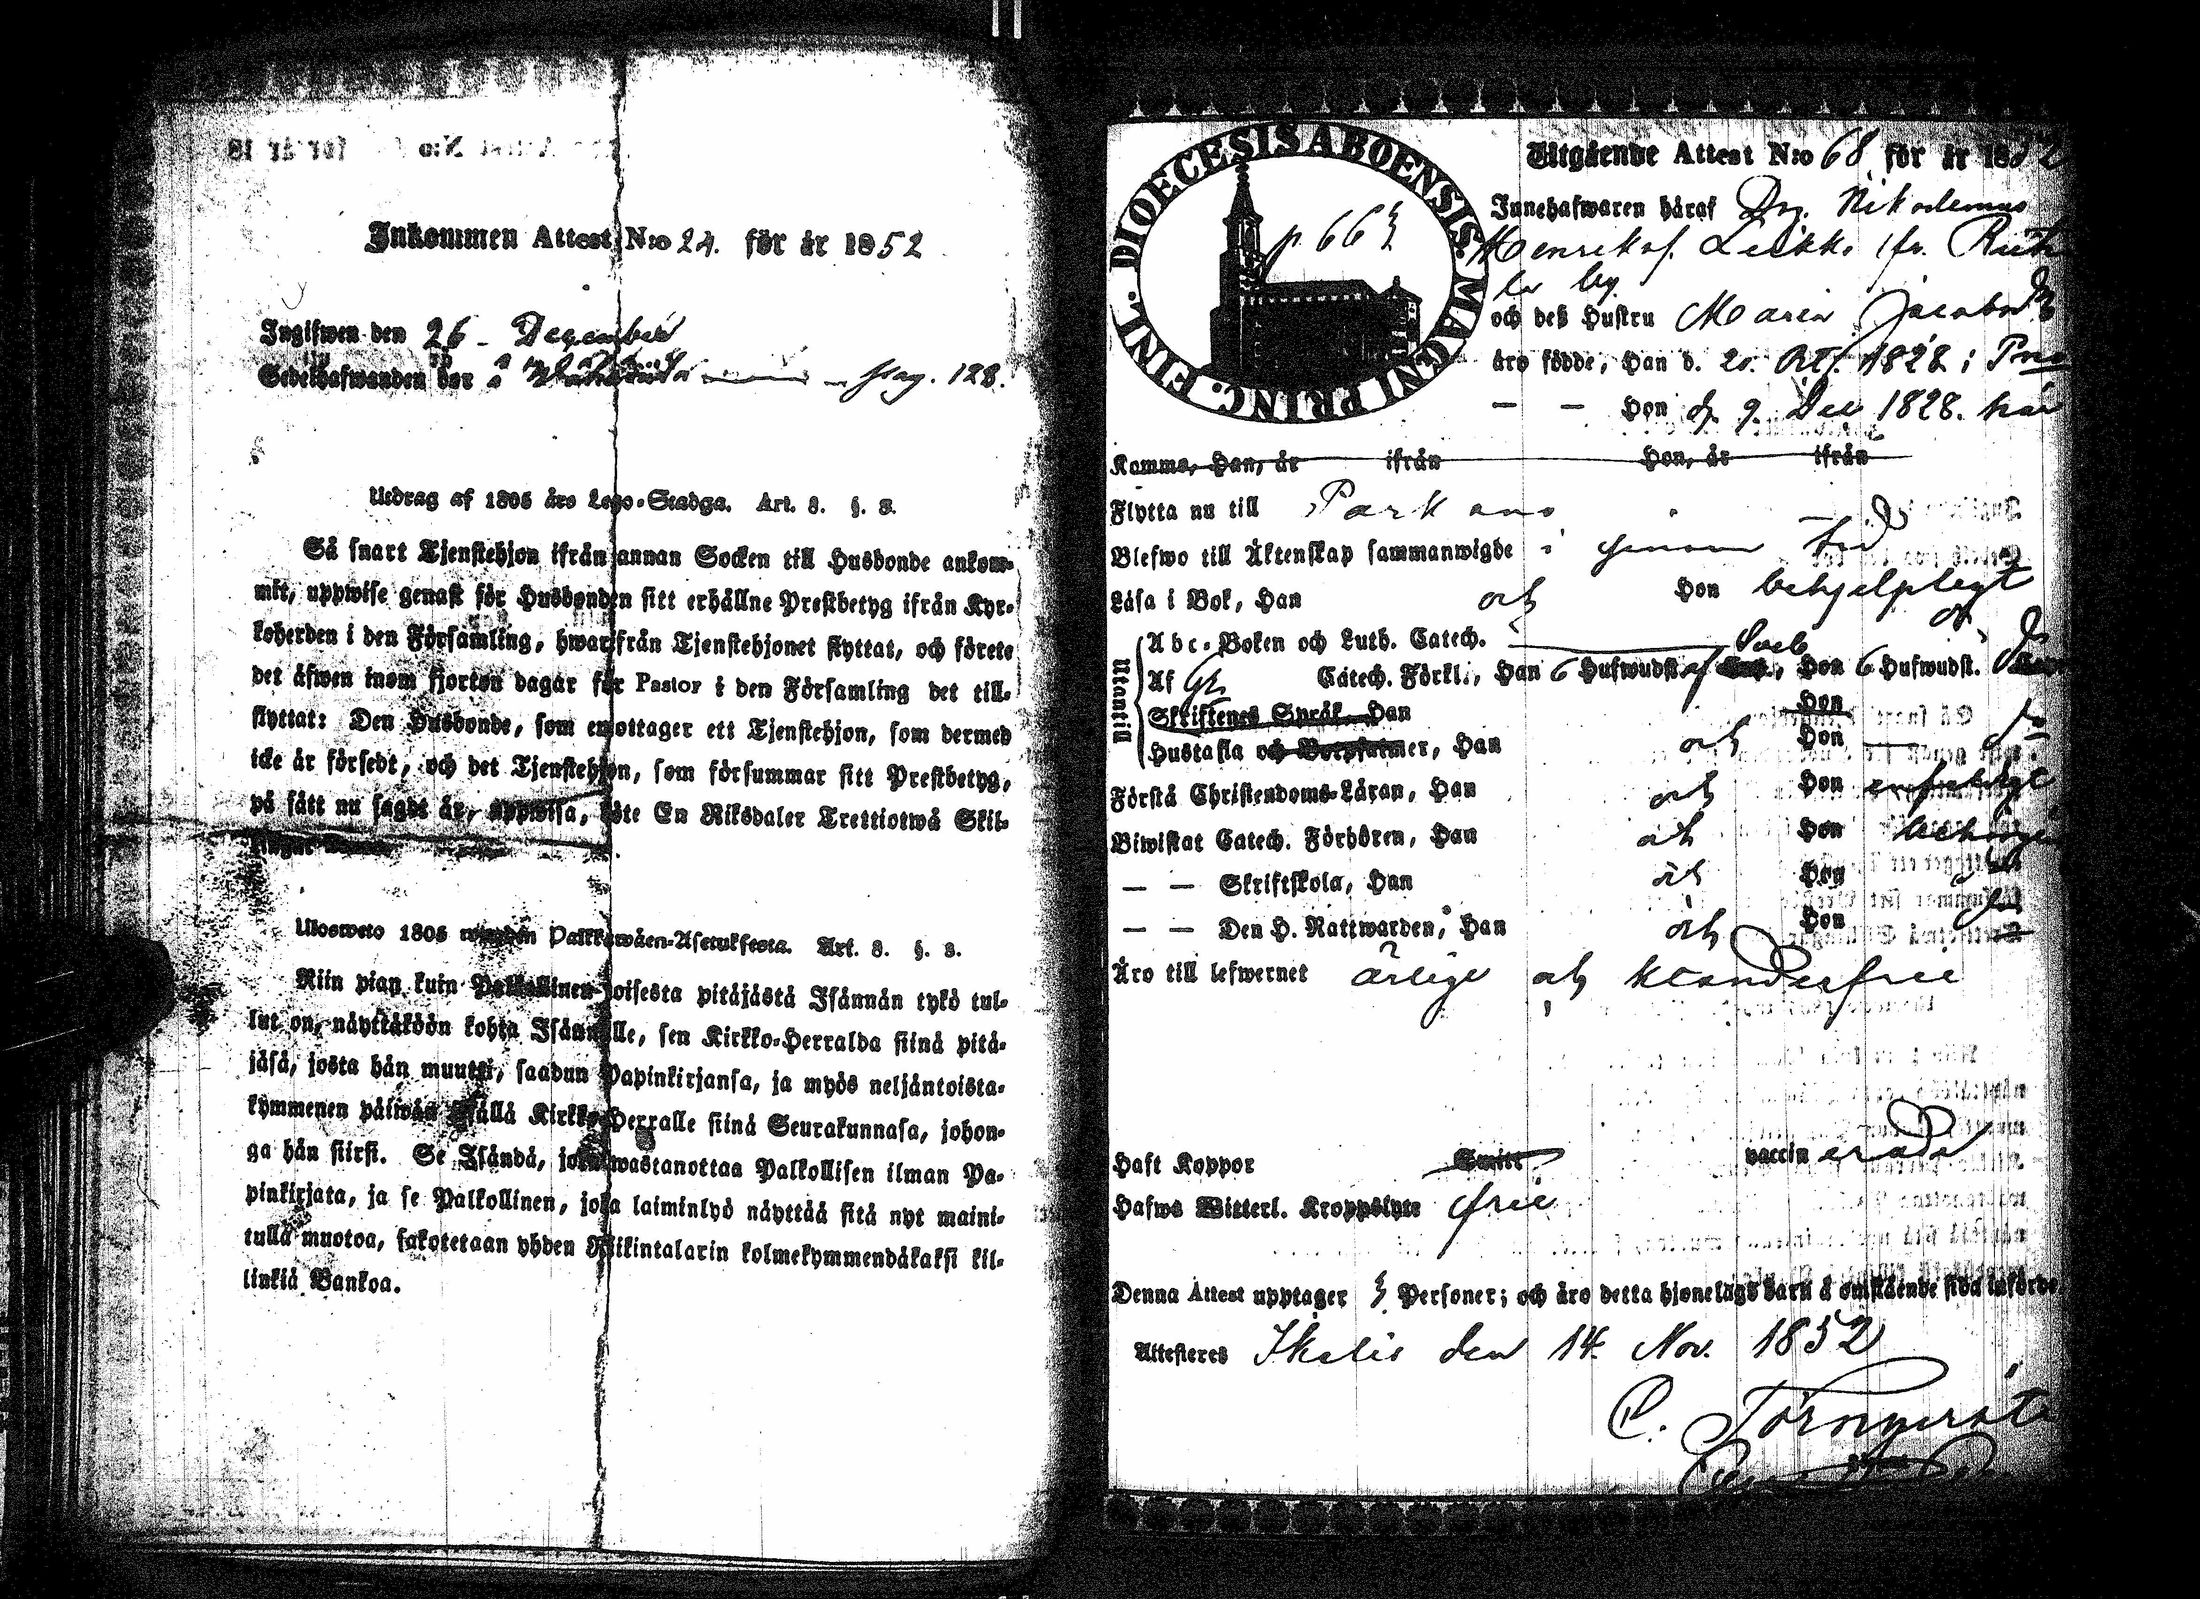 Inkommen Attest N:o 24. för år 1852
Ingifwen den 26 - December
Sedelhafwanden bor å pag. 128.
Utdrag af 1805 års Lego-Stadga. Art. 8. §. 3.
Så snart Tjenstehjon ifrån annan Socken till Husbonde ankom-
mit, uppwise genast för Husbonden sitt erhållne Prestbetyg ifrån Kyr-
koherden i den Församling, hwarifrån Tjenstehjonet flyttat, och förete
det äfwen inom fjorton dagar för Pastor i den Församling det till-
flyttat: Den Husbonde, som emottager ett Tjenstehjon, som dermed
icke är försedt, och det Tjenstehjon, som försummar sitt Prestbetyg,
på sätt nu sagdt är, uppwisa, böte En Riksdaler Trettiotwå Skil-
Uloswеto 1805 wuoden Palkkawäen-Asetuksesta. Art. 8. §. 3.
Niin pian kuin Palkollinen toisesta pitäjästä Isännän tykö tul-
lut on, näyttäköön kohta Isännälle, sen Kirkko-Herralda siinä pitä-
jäsä, josta hän muutti, saadun Papinkirjansa, ja myös neljäntoista-
kymmenen päiwän sisällä Kirkko-Herralle siinä Seurakunnasa, johon-
ga hän siirsi. Se Isändä, joka wastanottaa Palkollisen ilman Pa-
pinkirjata, ja se Palkollinen, joka laiminlyö näyttää sitä nyt maini-
tulla muotoa, sakotetaan yhden Riikintalarin kolmekymmendäkaksi kil-
linkiä Bankoa.
DIOECESIS ABOENSIS. MAGNI PRINC. FINL.
p. 663
Utgående Attest N:o 68 för år 1852
Innehafwaren häraf Drg. Nikodemus
Henriksf. Leikko ifr.
by
och deß Hustru Maria Jacobsd
äro födde, Han d. 20. Oct. 1828 i
— — Hon d. 9. Dec 1828. här
Komne, Han, år ifrån Hon, år ifrån
Flytta nu till Parkano
Blefwo till Äktenskap sammanwigde i sinom tid
Läsa i Bok, Han och Hon behjelpligt
Utantill
Abc-Boken och Luth. Catech.
Af Catech. Förkl., Han 6 Hufwudst. af Sveb, Hon 6 Hufwudst.
Skriftenes Språk, Han Hon
Hustafla och Botpsalmer, Han och Hon do
Förstå Christendoms-Läran, Han och Hon enfaldigt
Biwistat Catech. Förhören, Han och Hon
— — Skriftskola, Han och Hon
— — Den H. Nattwarden, Han och Hon
Äro till lefwernet ärlige och klanderfrie
Haft Koppor Smitt vaccinerade
Hafwa Witterl. Kroppslyte frie
Denna Attest upptager Personer; och äro detta hjonelags barn å omstående sida införde
Attesteras Ikalis den 14. Nov. 1852
C. Törnqvist